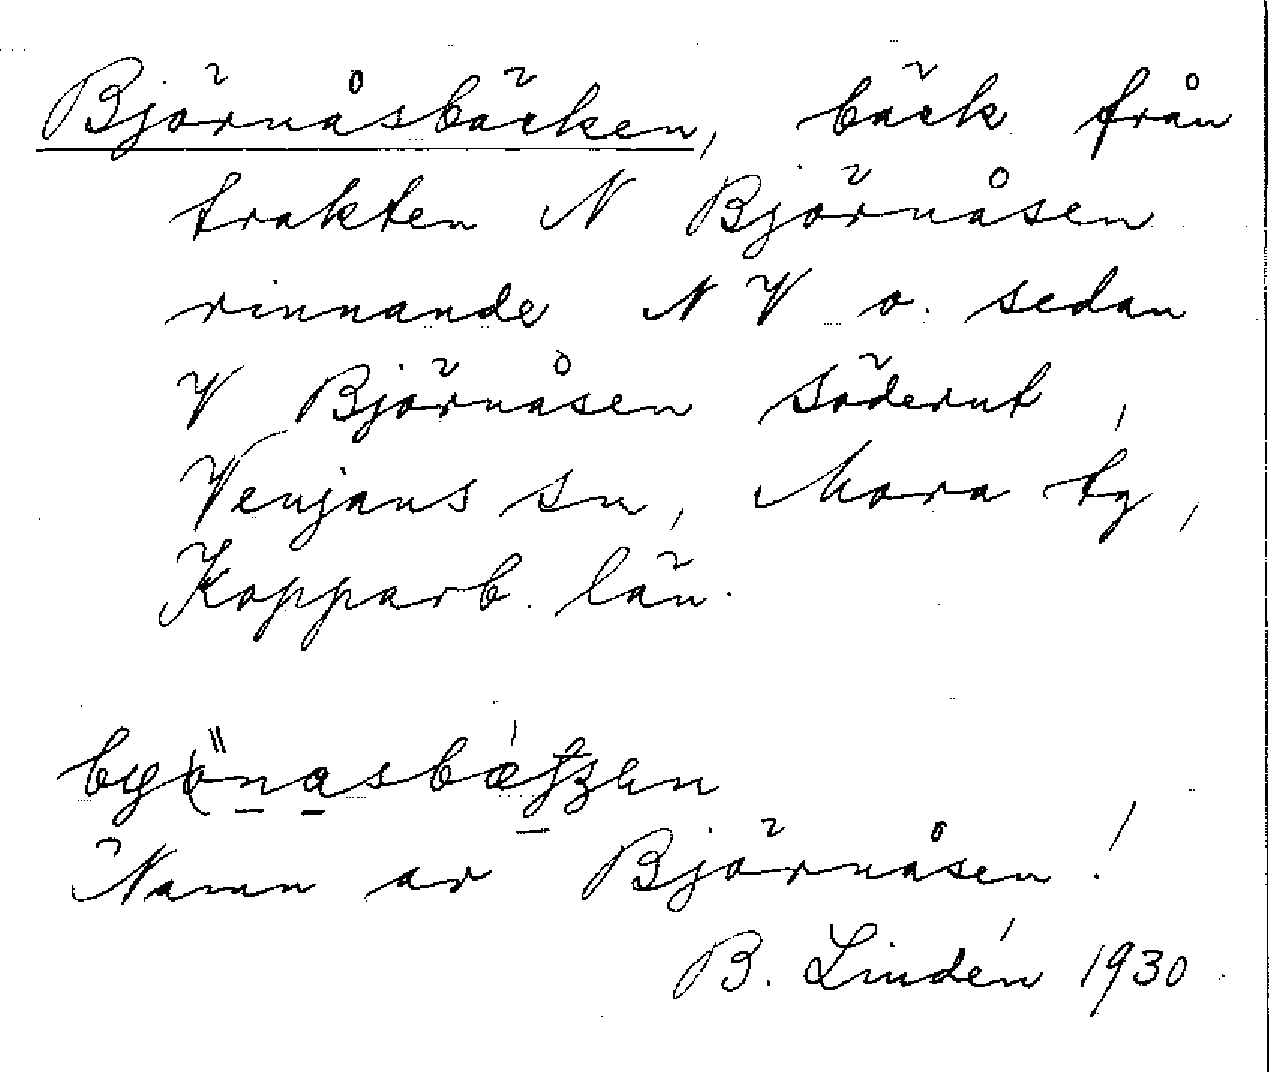 Björnåsbäcken, bäck från
trakten N Björnåsen
rinnande NV o. sedan
V Björnåsen söderut,
Venjans sn, Mora tg,
Kopparb. län.
Namn av Björnåsen!
B. Lindén 1930